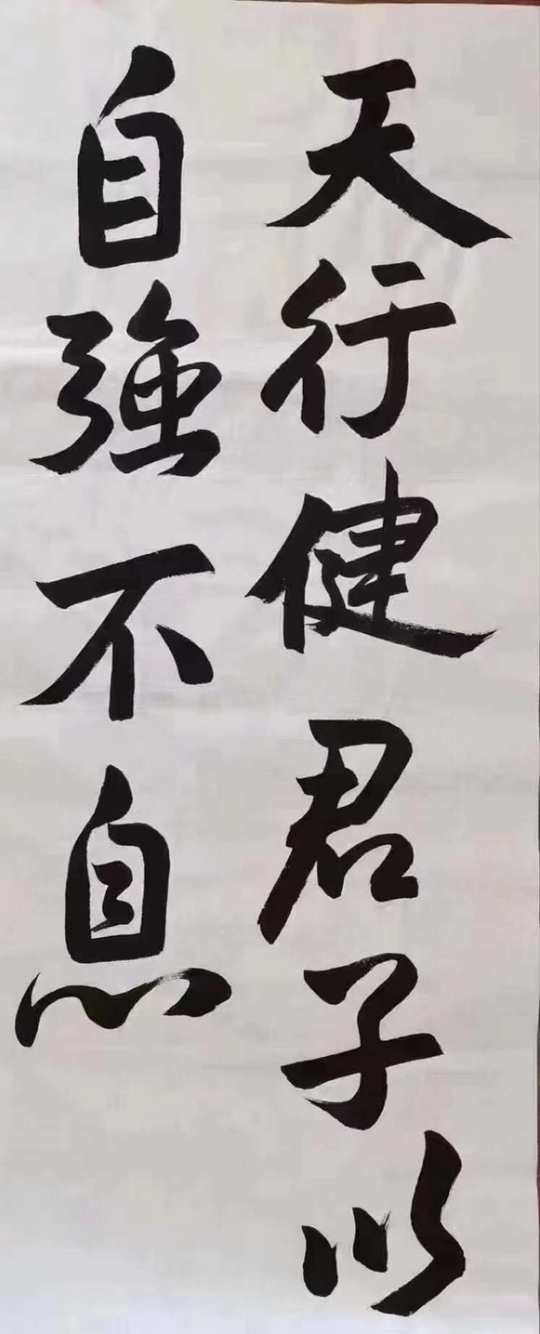 天行健君子以
自強不息